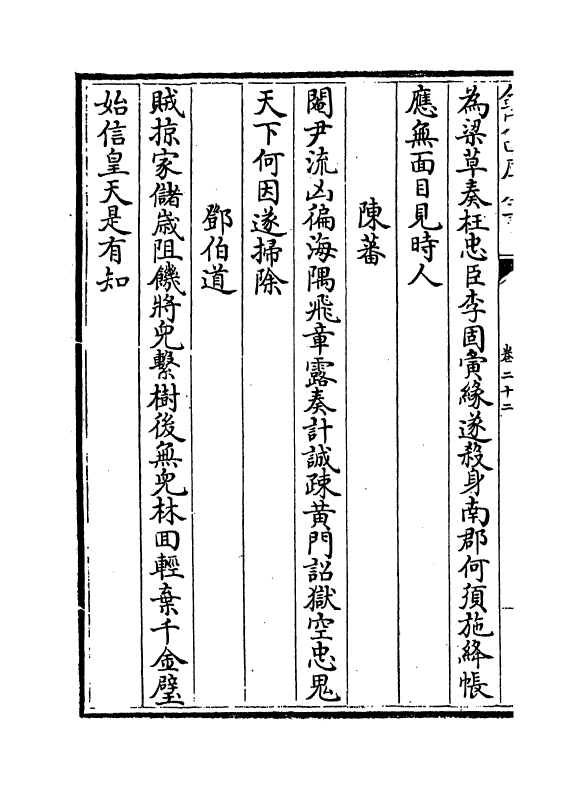 卷二十二
為梁草奏枉忠臣李固夤緣遂殺身南郡何須施絳帳
應無面目見時人
陳蕃
閹尹流凶徧海隅飛章露奏計誠疎黄門詔獄空忠鬼
天下何因遂掃除
鄧伯道
賊掠家儲歲阻饑將兒繫樹後無兒林囬輕棄千金璧
始信皇天是有知